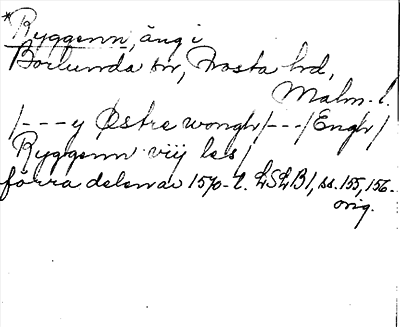 *Ryggenn, äng i
Borlunda sn, Frosta hd,
Malm. l.
/---y Østre wongh/---/Engh/
Ryggenn viij les/
förra delen av 1570-t. LSLB 1, ss. 155, 156.
orig.